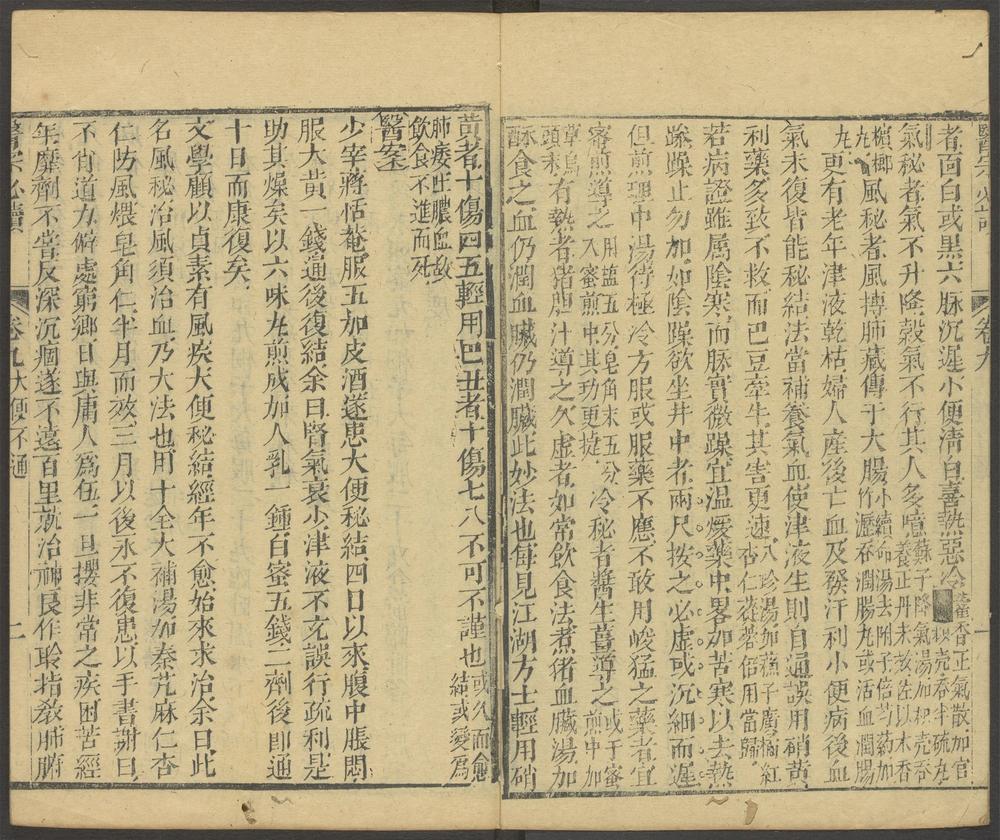 醫宗必讀 卷九 一
者面白或黑六脉沉遲小便清白喜熱惡冷藿香正氣散加官桂枳壳吞半硫丸
氣秘者氣不升降穀氣不行其人多噫蘇子降氣湯加枳壳吞養正丹未效佐以木香
檳榔丸風秘者風搏肺藏傳于大腸小續命湯去附子倍芍藥加竹瀝吞潤腸丸或活血潤腸
丸更有老年津液乾枯婦人産後亡血及發汗利小便病後血
氣未復皆能秘結法當補養氣血使津液生則自通誤用硝黄
利藥多致不救而巴豆牽牛其害更速八珍湯加蘇子廣橘紅杏仁蓯蓉倍用當歸
若病證雖属陰寒而脉實微躁宜温煖藥中畧加苦寒以去熱
躁躁止勿加如陰躁欲坐井中者兩尺按之必虛或沉細而遲
但煎理中湯待極冷方服或服藥不應不敢用峻猛之藥者宜
蜜煎導之用盐五分皂角末五分入蜜煎中其功更捷冷秘者醬生薑導之或于蜜煎中加
草烏頭末有熱者猪胆汁導之久虚者如常飲食法煮猪血臟湯加
酥食之血仍潤血臟仍潤臟此妙法也每見江湖方士輕用硝
黄者十傷四五輕用巴丑者十傷七八不可不謹也或久而愈結或變為
肺痿吐膿血或飲食不進而死
醫案
少宰蔣恬菴服五加皮酒遂患大便秘結四日以來腹中脹悶
服大黄一錢通後復結余曰腎氣衰少津液不充誤行疏利是
助其燥矣以六味丸煎成加人乳一鍾白蜜五錢二劑後即通
十日而康復矣
文學顧以貞素有風疾大便秘結經年不愈始來求治余曰此
名風秘治風須治血乃大法也用十全大補湯加秦艽麻仁杏
仁防風煨皂角仁半月而效三月以後永不復患以手書謝曰
不肖道力僻處窮鄉日與庸人爲伍一旦攖非常之疾困苦經
年靡劑不嘗反深沉痼遂不遠百里就治神良作聆指教肺腑
醫宗必讀 卷九大便不通 二